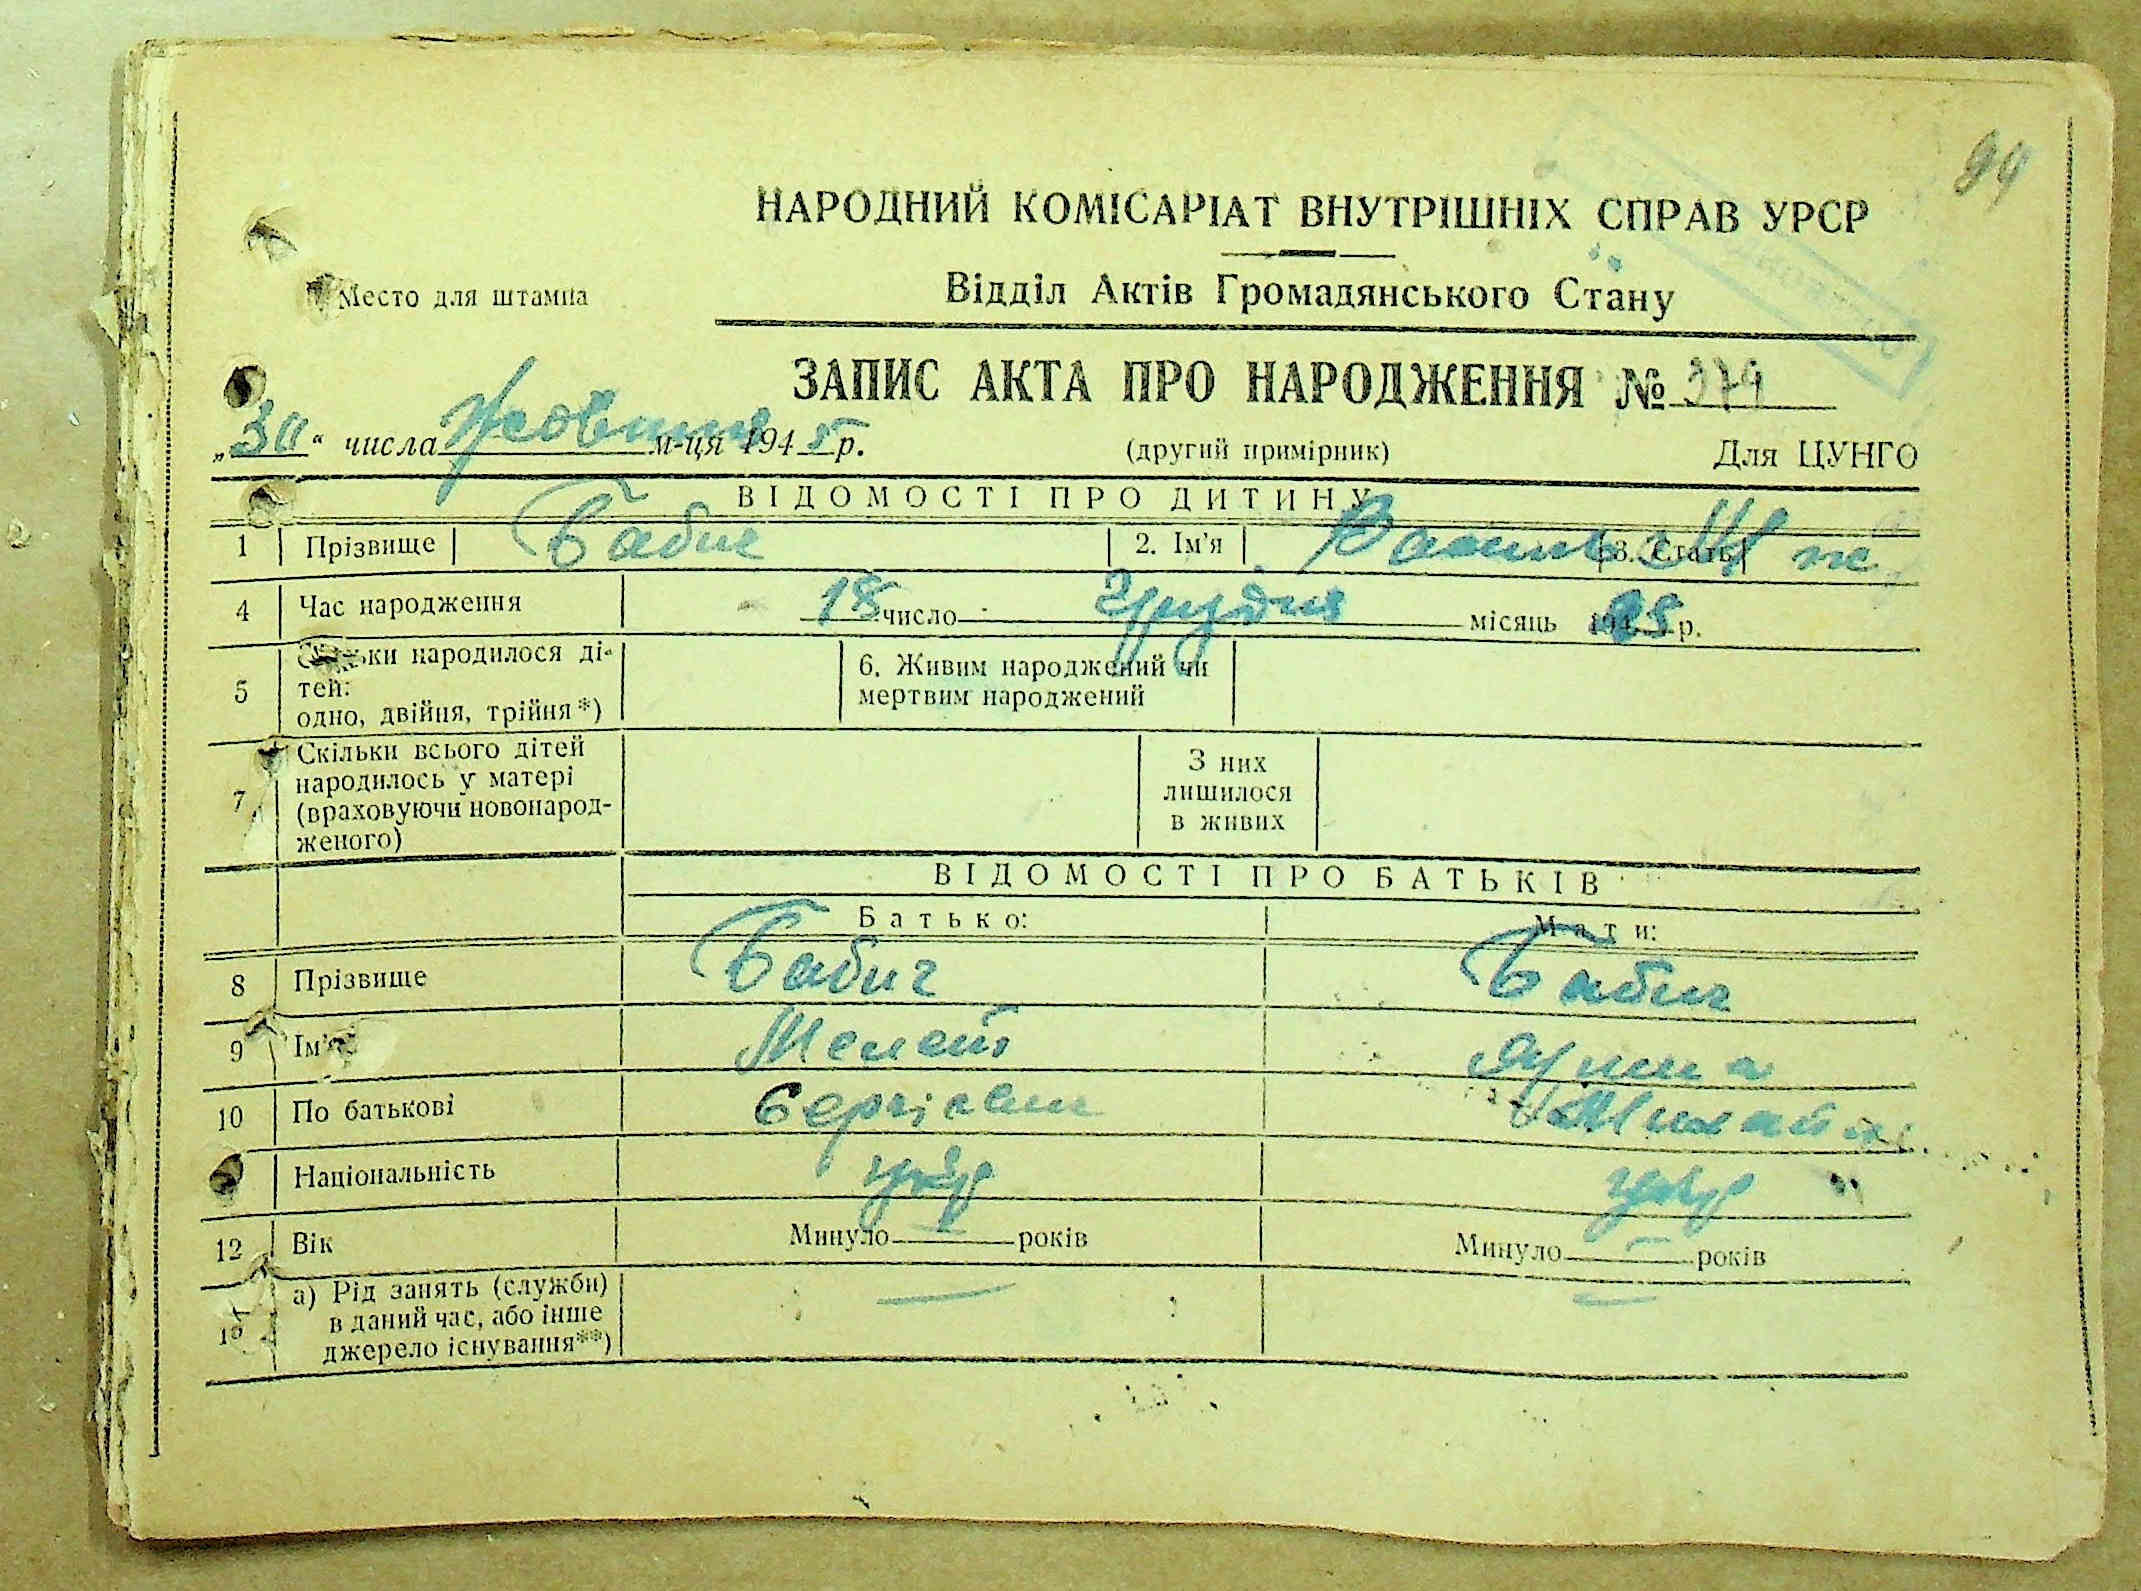 94
НАРОДНИЙ КОМІСАРІАТ ВНУТРІШНІХ СПРАВ УРСР
Место для штампа
Відділ Актів Громадянського Стану
ЗАПИС АКТА ПРО НАРОДЖЕННЯ № 379
„30“ числа Жовтня м-ця 1945 р. (другий примірник) Для ЦУНГО
ВІДОМОСТІ ПРО ДИТИНУ
1 Прізвище Бабич 2. Ім'я Василь 3. Стать
4 Час народження 18 число Грудня місяць р.
5 народилося ді-
тей:
одно, двійня, трійня*)
6. Живим народжений чи
мертвим народжений
7 Скільки всього дітей
народилось у матері
(враховуючи новонарод-
женого)
З них
лишилося
в живих
ВІДОМОСТІ ПРО БАТЬКІВ
Батько: Мати:
8 Прізвище Бабич Бабич
9 Ім'я
10 По батькові Сергієвич
Національність укр укр
12 Вік Минуло — років Минуло — років
а) Рід занять (служби)
в даний час, або інше
джерело існування**)